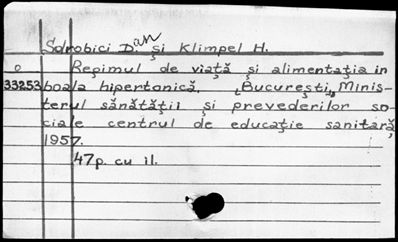 Sdrobici Dan și Klimpel H.
o Regimul de viață și alimentația in
33253 boala hipertonică. „București„, Minis-
terul sănătății și prevederilor so-
ciale centrul de educație sanitară,
1957.
47p. cu il.